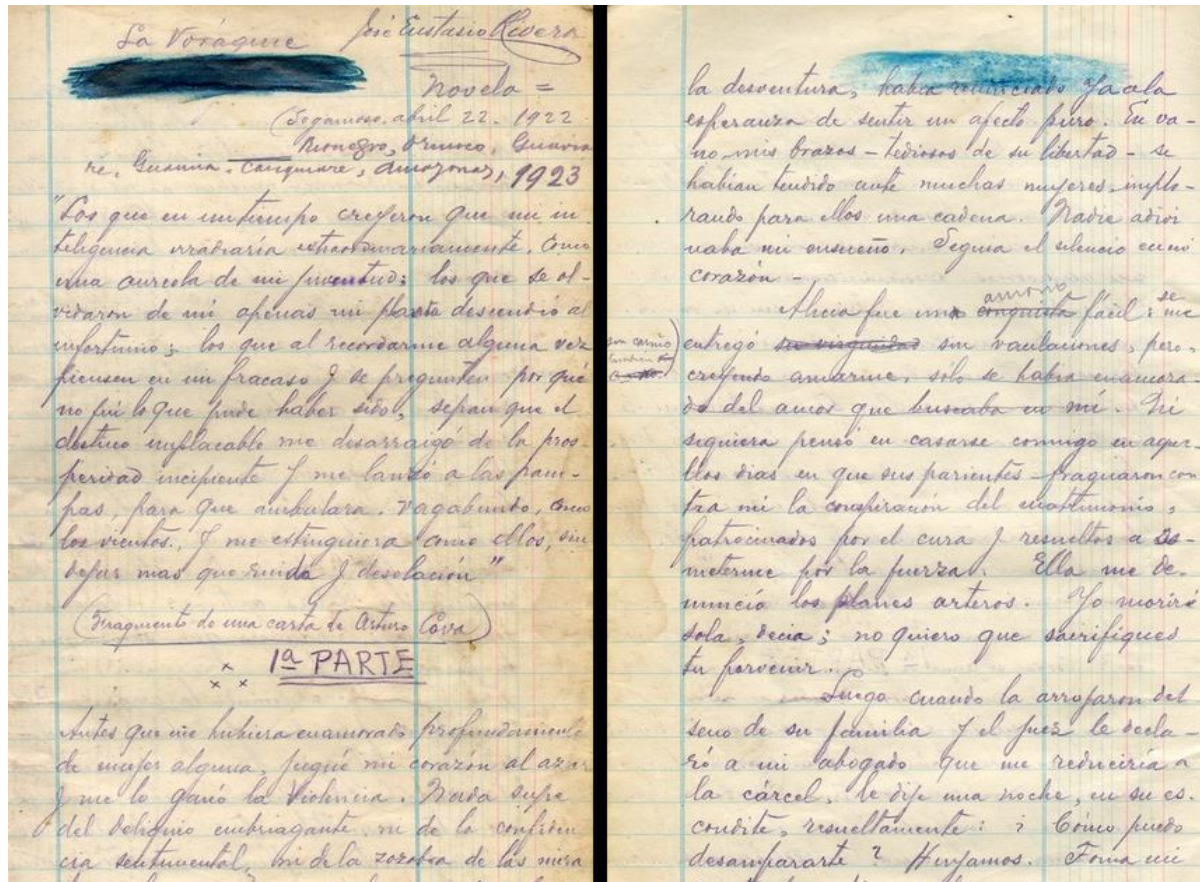 La Vorágine José Eustasio Rivera
Novela =
(Sogamoso, abril 22. 1922
Rionegro, Orinoco, Guavia
re, Guainía, Casiquiare, Amazonas, 1923
"Los que en un tiempo creyeron que mi in
teligencia irradiaría extraordinariamente, como
una aureola de mi juventud; los que se ol-
vidaron de mí apenas mi planta descendió al
infortunio; los que al recordarme alguna vez
piensen en mi fracaso y se pregunten por qué
no fui lo que pude haber sido, sepan que el
destino implacable me desarraigó de la pros
peridad incipiente y me lanzó a las pam-
pas, para que ambulara, vagabundo, como
los vientos, y me extinguiera como ellos, sin
dejar mas que ruido y desolación"
(Fragmento de una carta de Arturo Cova)
1ª PARTE
Antes que me hubiera enamorado profundamente
de mujer alguna, jugué mi corazón al azar
y me lo ganó la Violencia. Nada supe
del deliquio embriagante, ni de la confiden
cia sentimental, ni de la zozobra de las mira
la desventura, había renunciado ya a la
esperanza de sentir un afecto puro. En va-
no mis brazos - tediosos de su libertad - se
habían tendido ante muchas mujeres, implo-
rando para ellos una cadena. Nadie adivi
naba mi ensueño. Seguía el silencio en mi
corazón -
amorío
Alicia fue una conquista fácil; se me
son cariño
también
entregó sin vacilaciones, pero,
creyendo amarme, sólo se había enamora
do del amor que buscaba en mí. Ni
siquiera pensó en casarse conmigo en aque-
llos días en que sus parientes fraguaron con
tra mí la conspiración del matrimonio,
patrocinados por el cura y resueltos a so-
meterme por la fuerza. Ella me de-
nunció los planes arteros. Yo moriré
sola, decía; no quiero que sacrifiques
tu porvenir.
Luego cuando la arrojaron del
seno de su familia y el juez le decla-
ró a mi abogado que me reduciría a
la cárcel, le dije una noche, en su es-
condite, resueltamente: ¿Cómo puedo
desampararte? Huyamos. Toma mi